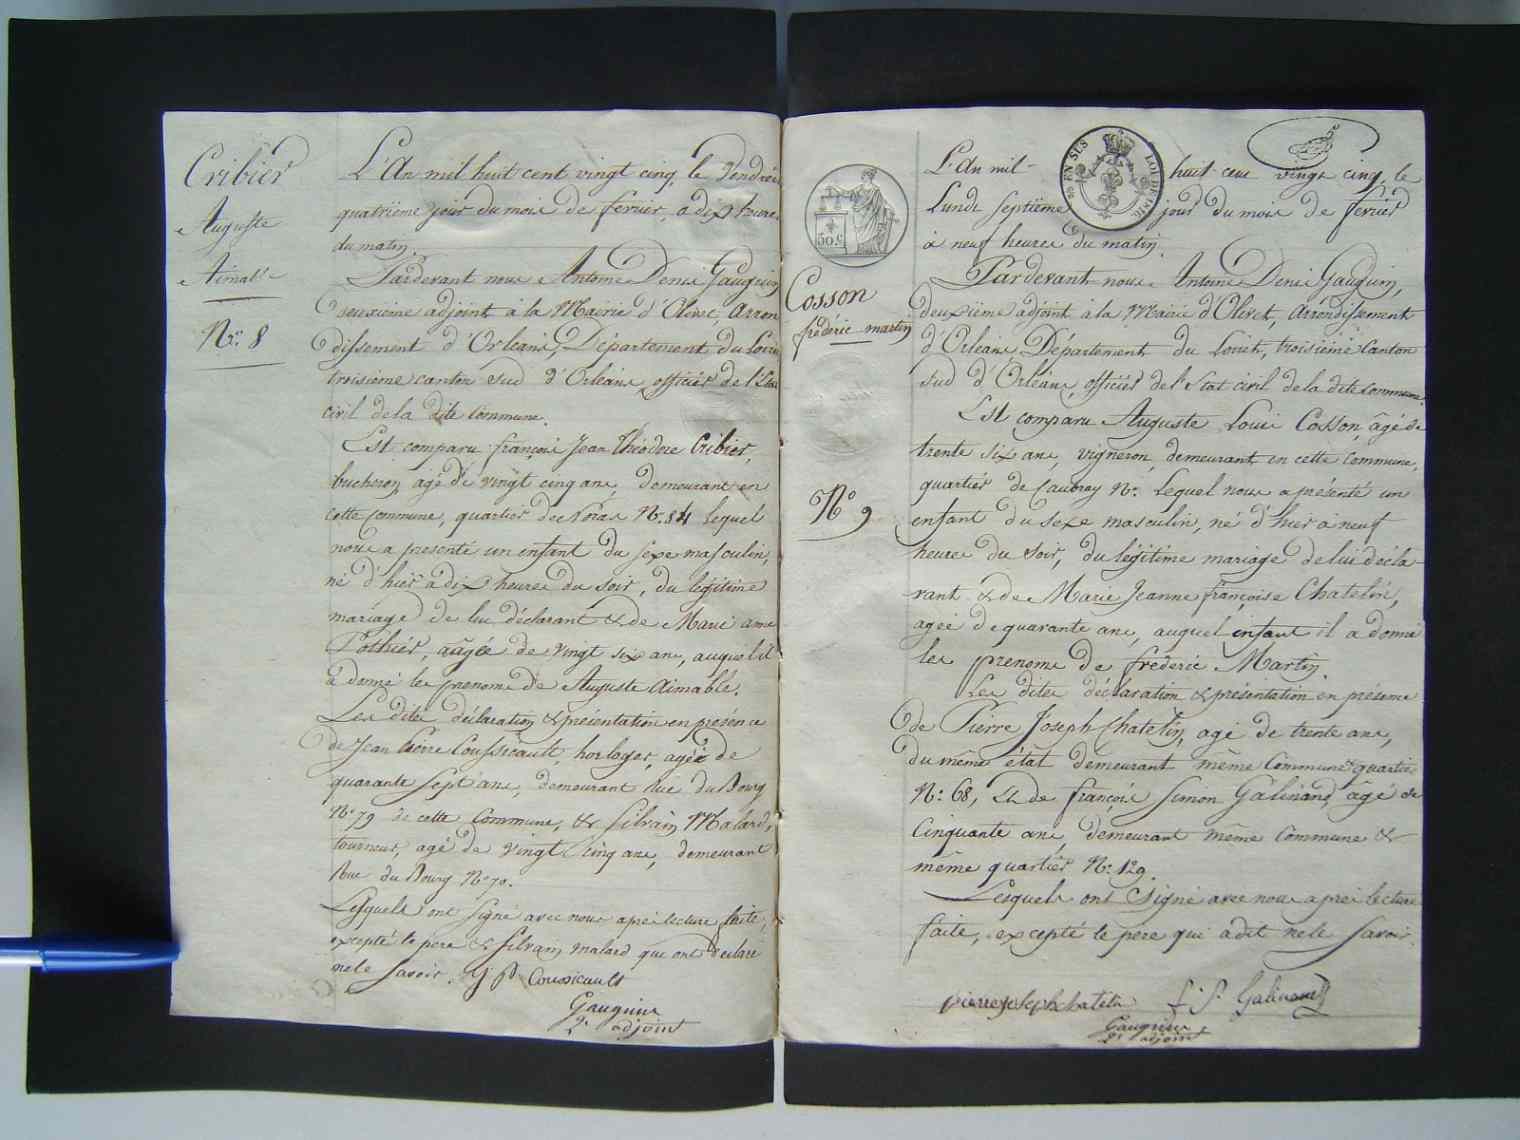 Cribier
Auguste
Aimable
N° 8
L'An mil huit cent vingt cinq, le Vendredi
quatrième jour du mois de fevrier, a dix heures
du matin.
Pardevant nous Antoine Denis Gauguin,
deuxième adjoint à la Mairie d'Olivet, Arron
dissement d'Orléans, Département du Loiret
troisième canton sud d'Orléans, officier de l'Etat
civil de la dite commune.
Est comparu françois Jean Théodore Cribier,
bucheron, agé de vingt cinq ans, demeurant en
cette Commune, quartier des N° 84 lequel
nous a presenté un enfant du sexe masculin,
né d'hier à dix heures du soir, du légitime
mariage de lui déclarant & de Marie anne
Pothier, âgée de vingt six ans, auquel il
a donné les prenoms de Auguste Aimable.
Les dites déclaration & présentation en présence
de Jean Pierre Coussicault, horloger, agée de
quarante sept ans, demeurant Rue du Bourg
N° 79 de cette Commune, & Silvain Malard,
tourneur, agé de vingt cinq ans, demeurant
Rue du Bourg N° 70.
Lesquels ont signé avec nous après lecture faite,
excepté le pere & Silvain malard qui ont déclaré
ne le savoir. J P Coussicault
Gauguin
2e adjoint
50 c
EN SUS
LOI DE 1816
Cosson
frédéric martin
N° 9
L'An mil huit cent vingt cinq, le
Lundi septième jour du mois de fevrier
à neuf heures du matin.
Pardevant nous Antoine Denis Gauguin,
deuxième adjoint à la Mairie d'Olivet, Arrondissement
d'Orléans, Département du Loiret, troisième Canton
sud d'Orléans, officier de l'Etat civil de la dite commune.
Est comparu Auguste Louis Cosson, âgé de
trente six ans, vigneron, demeurant en cette Commune,
quartier de Caubray N° Lequel nous a présenté un
enfant du sexe masculin, né d'hier à neuf
heures du soir, du légitime mariage de lui décla-
rant & de Marie Jeanne françoise Chatelin,
agée de quarante ans, auquel enfant il a donné
les prenoms de fréderic Martin.
Les dites déclaration & présentation en présence
de Pierre Joseph Chatelin, agé de trente ans,
du même état demeurant même Commune & quartier
N° 68, & de françois Simon Galinand, agé de
Cinquante ans, demeurant même Commune &
même quartier N° 129.
Lesquels ont Signé avec nous après lecture
faite, excepté le père qui a dit ne le savoir.
pierre joseph chatelin f. S. Galinand
Gauguin
2e adjoint